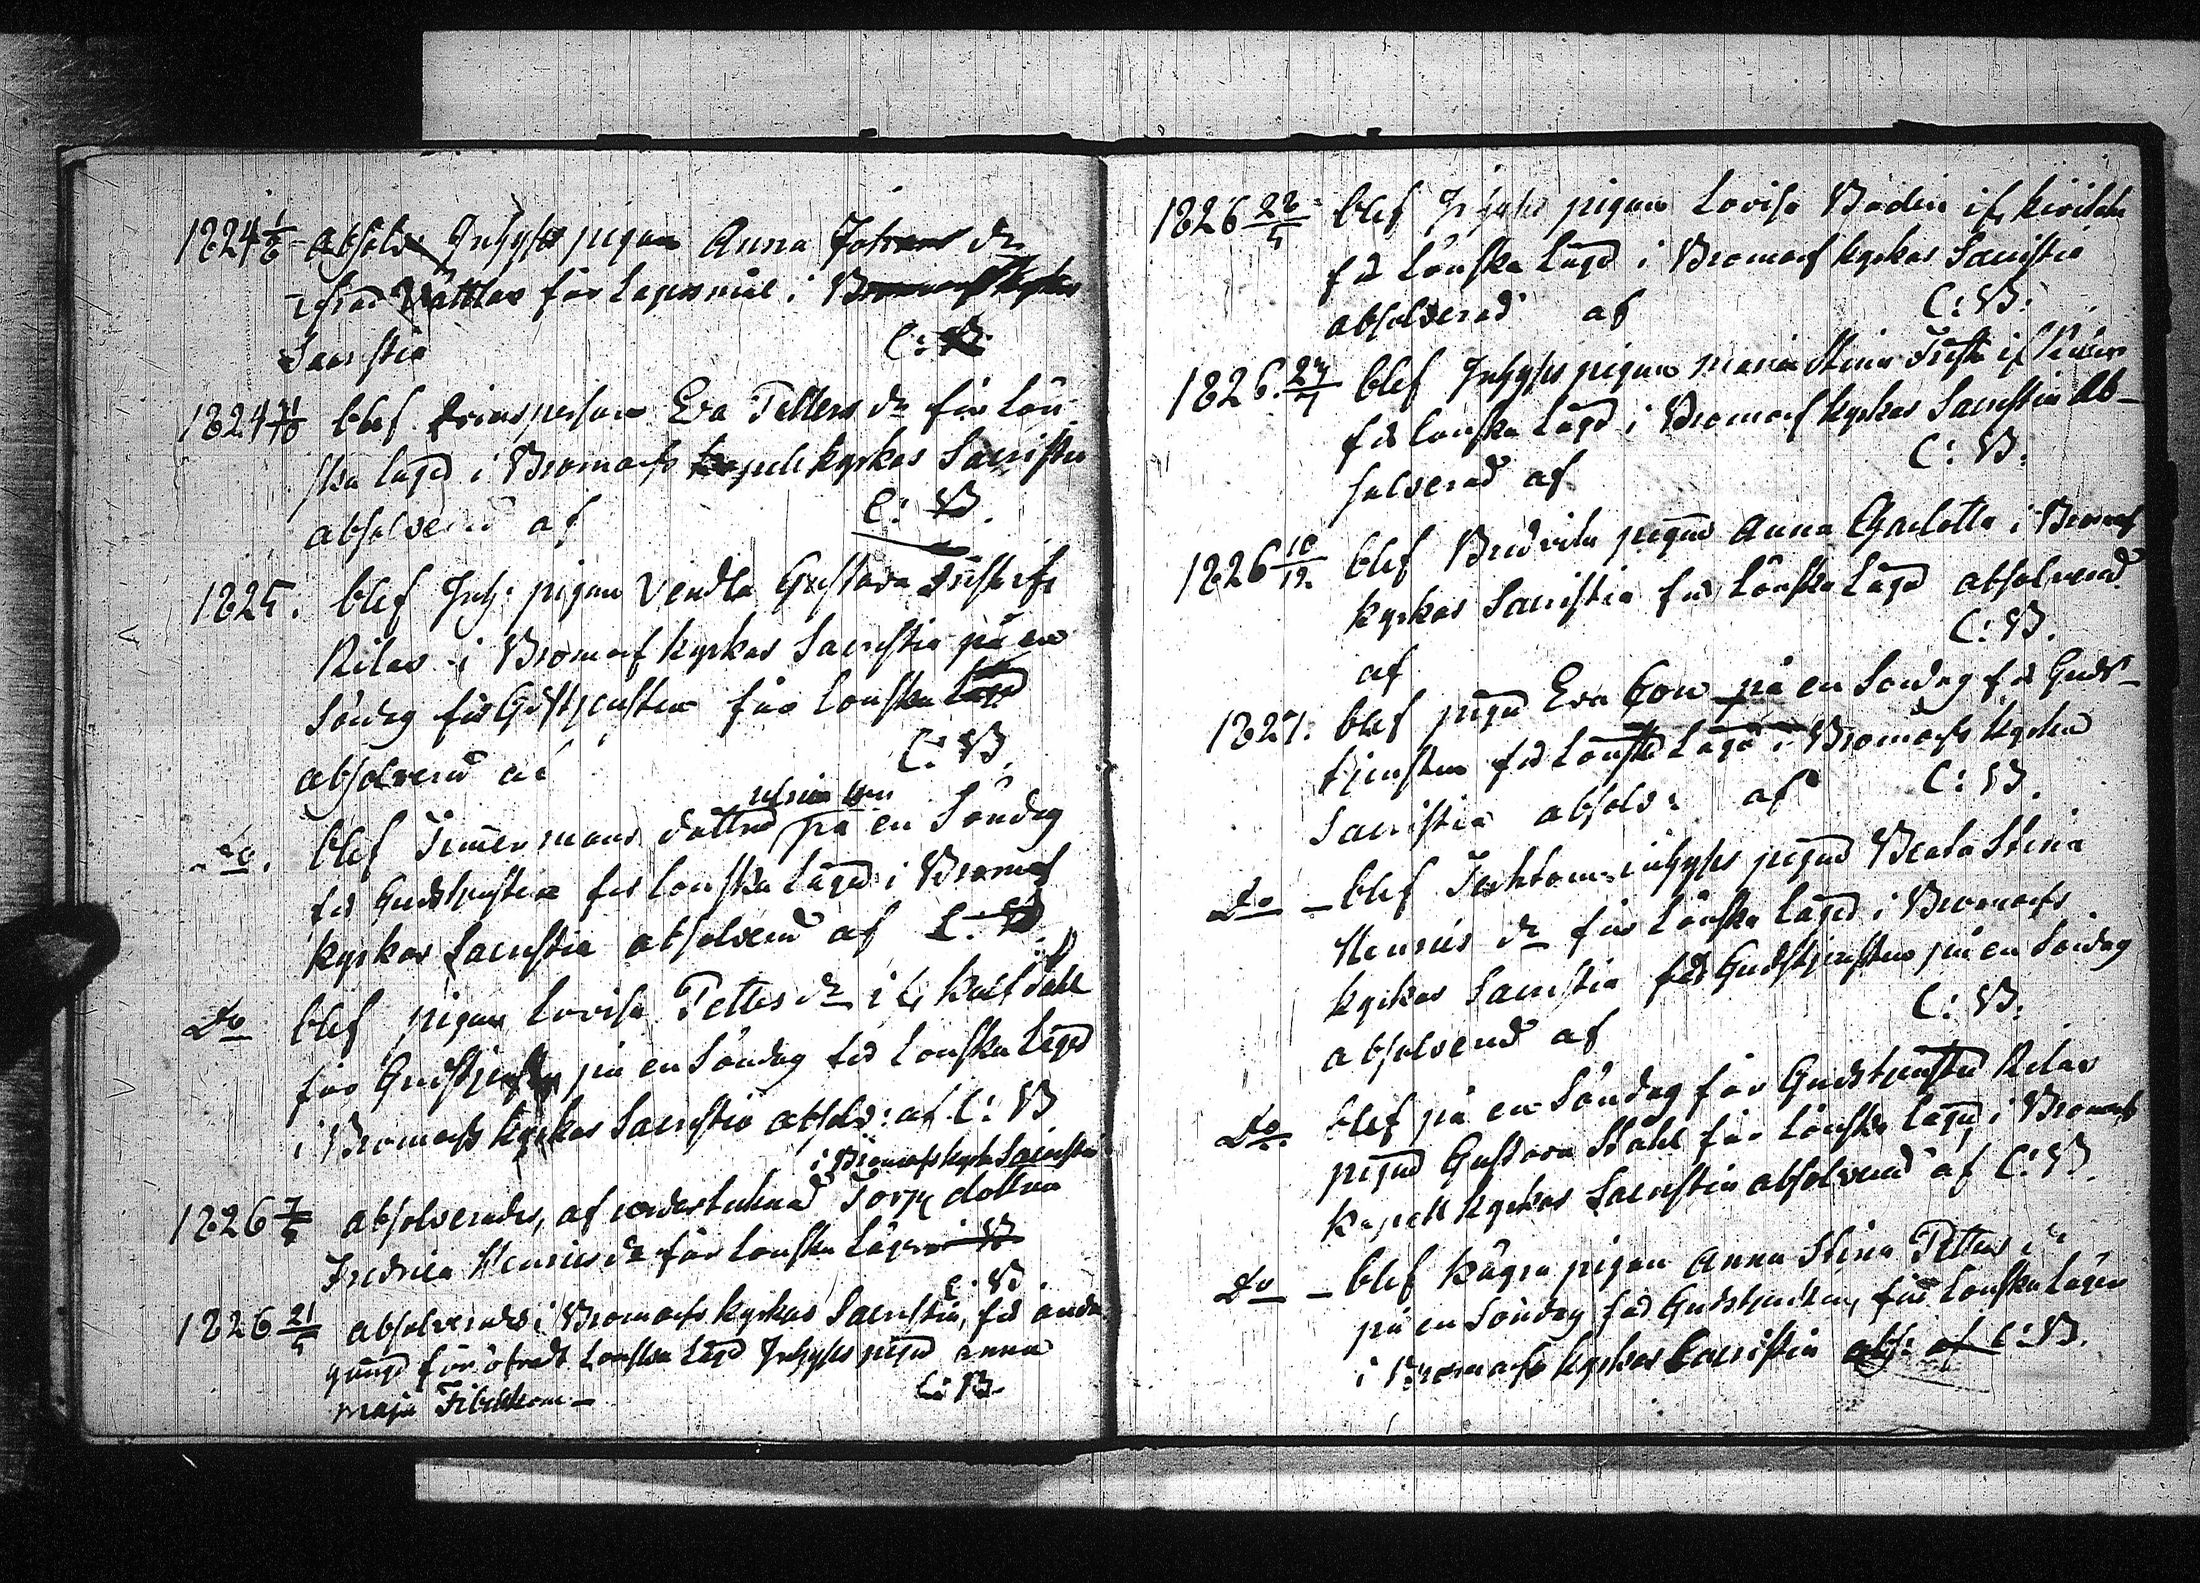 1824 1/8 absolv: Inhyses pigan Anna Johans dr
ifrån Vättlax för Lägersmål i Bromarf kyrkas
Sacristia C: B.
1824 31/10 blef Qvinsperson Eva Petters dr för Lön
ska Lägd i Bromarfs kapell kyrkas Sacristia
absolverad af C: B.
1825. blef Inh: pigan Vendla Gustava
Rilax i Bromarf kyrkas Sacristia på en
Söndag för Gudstjensten för Lönska Lägd
absolverad af C: B.
do. blef Timermans dottren på en Söndag
för Gudstjensten för Lönska Lägd i Bromarf
kyrkas Sacristia absolverad af C: B.
Do blef pigan Lovisa Petters dr i
för Gudstjensten på en Söndag för Lönska Lägd
i Bromarfs kyrkas Sacristia absolv: af C: B
i Bromarfs kyrk Sacristia
1826 7/5 absolverades, af undertecknad Torp dottren
Fredrica Henrics dr för Lönska Läger
C: B.
1826 21/5 absolverades i Bromarfs kyrkas Sacristia, för andra
gången för öfvadt Lönska Lägd Inhyses pigan Anna
Maja C: B.
1826 28/5 blef Inhyses pigan Lovisa Bodin
för Lönska Lägd i Bromarf kyrkas Sacristia
absolverad af C: B.
1826. 27/7 blef Inhyses pigan Maria Stina
för Lönska Lägd i Bromarf kyrkas Sacristia Ab-
solverad af C: B.
1826 10/12 blef Bredviks pigan Anna Charlotta i Bromarf
kyrkas Sacristia för Lönska Lägd absolverad
af C: B.
1827. blef pigan Eva på en Söndag för Guds-
tjensten för Lönska Lägd i Bromarfs kyrkas
Sacristia absolv: af C: B.
Do - blef inhyses pigan Beata Stina
Henrics dr för Lönska Lägd i Bromarfs
kyrkas Sacristia för Gudstjensten på en Söndag
absolverad af C: B.
Do blef på en Söndag för Gudstjensten Rilax
pigan Gustava Ståhl för Lönska Lägd i Bromarfs
kapell kyrkas Sacristia absolverad af C: B.
Do - blef pigan Anna Stina Petters dr
på en Söndag för Gudstjensten, för Lönska Läger
i Bromarfs kyrkas Sacristia abs: af C: B.